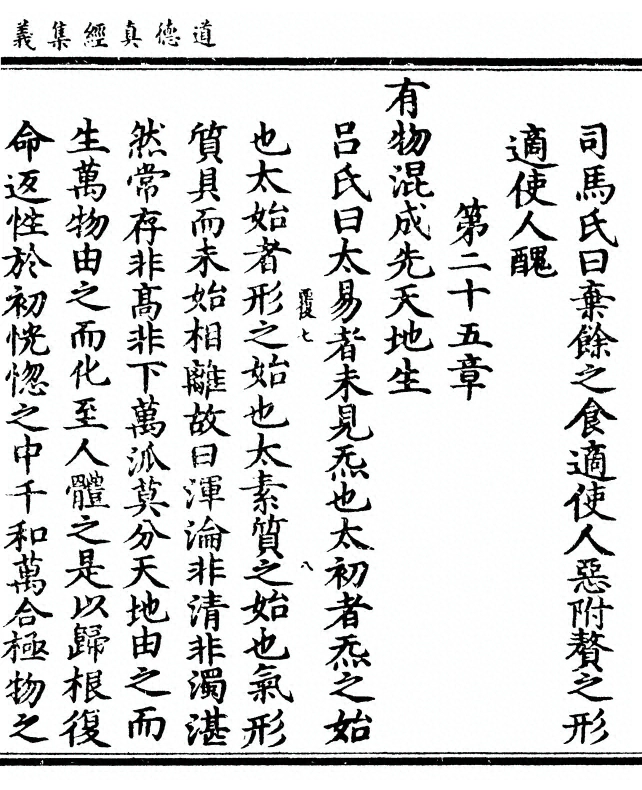 道德真經集義
司馬氏曰棄餘之食適使人惡附贅之形
適使人醜
第二十五章
有物混成先天地生
呂氏曰太易者未見炁也太初者炁之始
也太始者形之始也太素質之始也氣形
質具而未始相離故曰渾淪非清非濁湛
然常存非高非下萬泒莫分天地由之而
生萬物由之而化至人體之是以歸根復
命返性於初恍惚之中千和萬合極物之